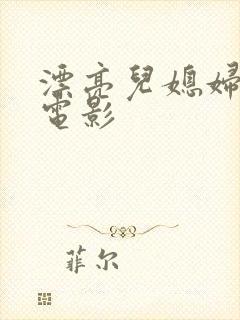 漂亮兒媳婦
電影
菲尔